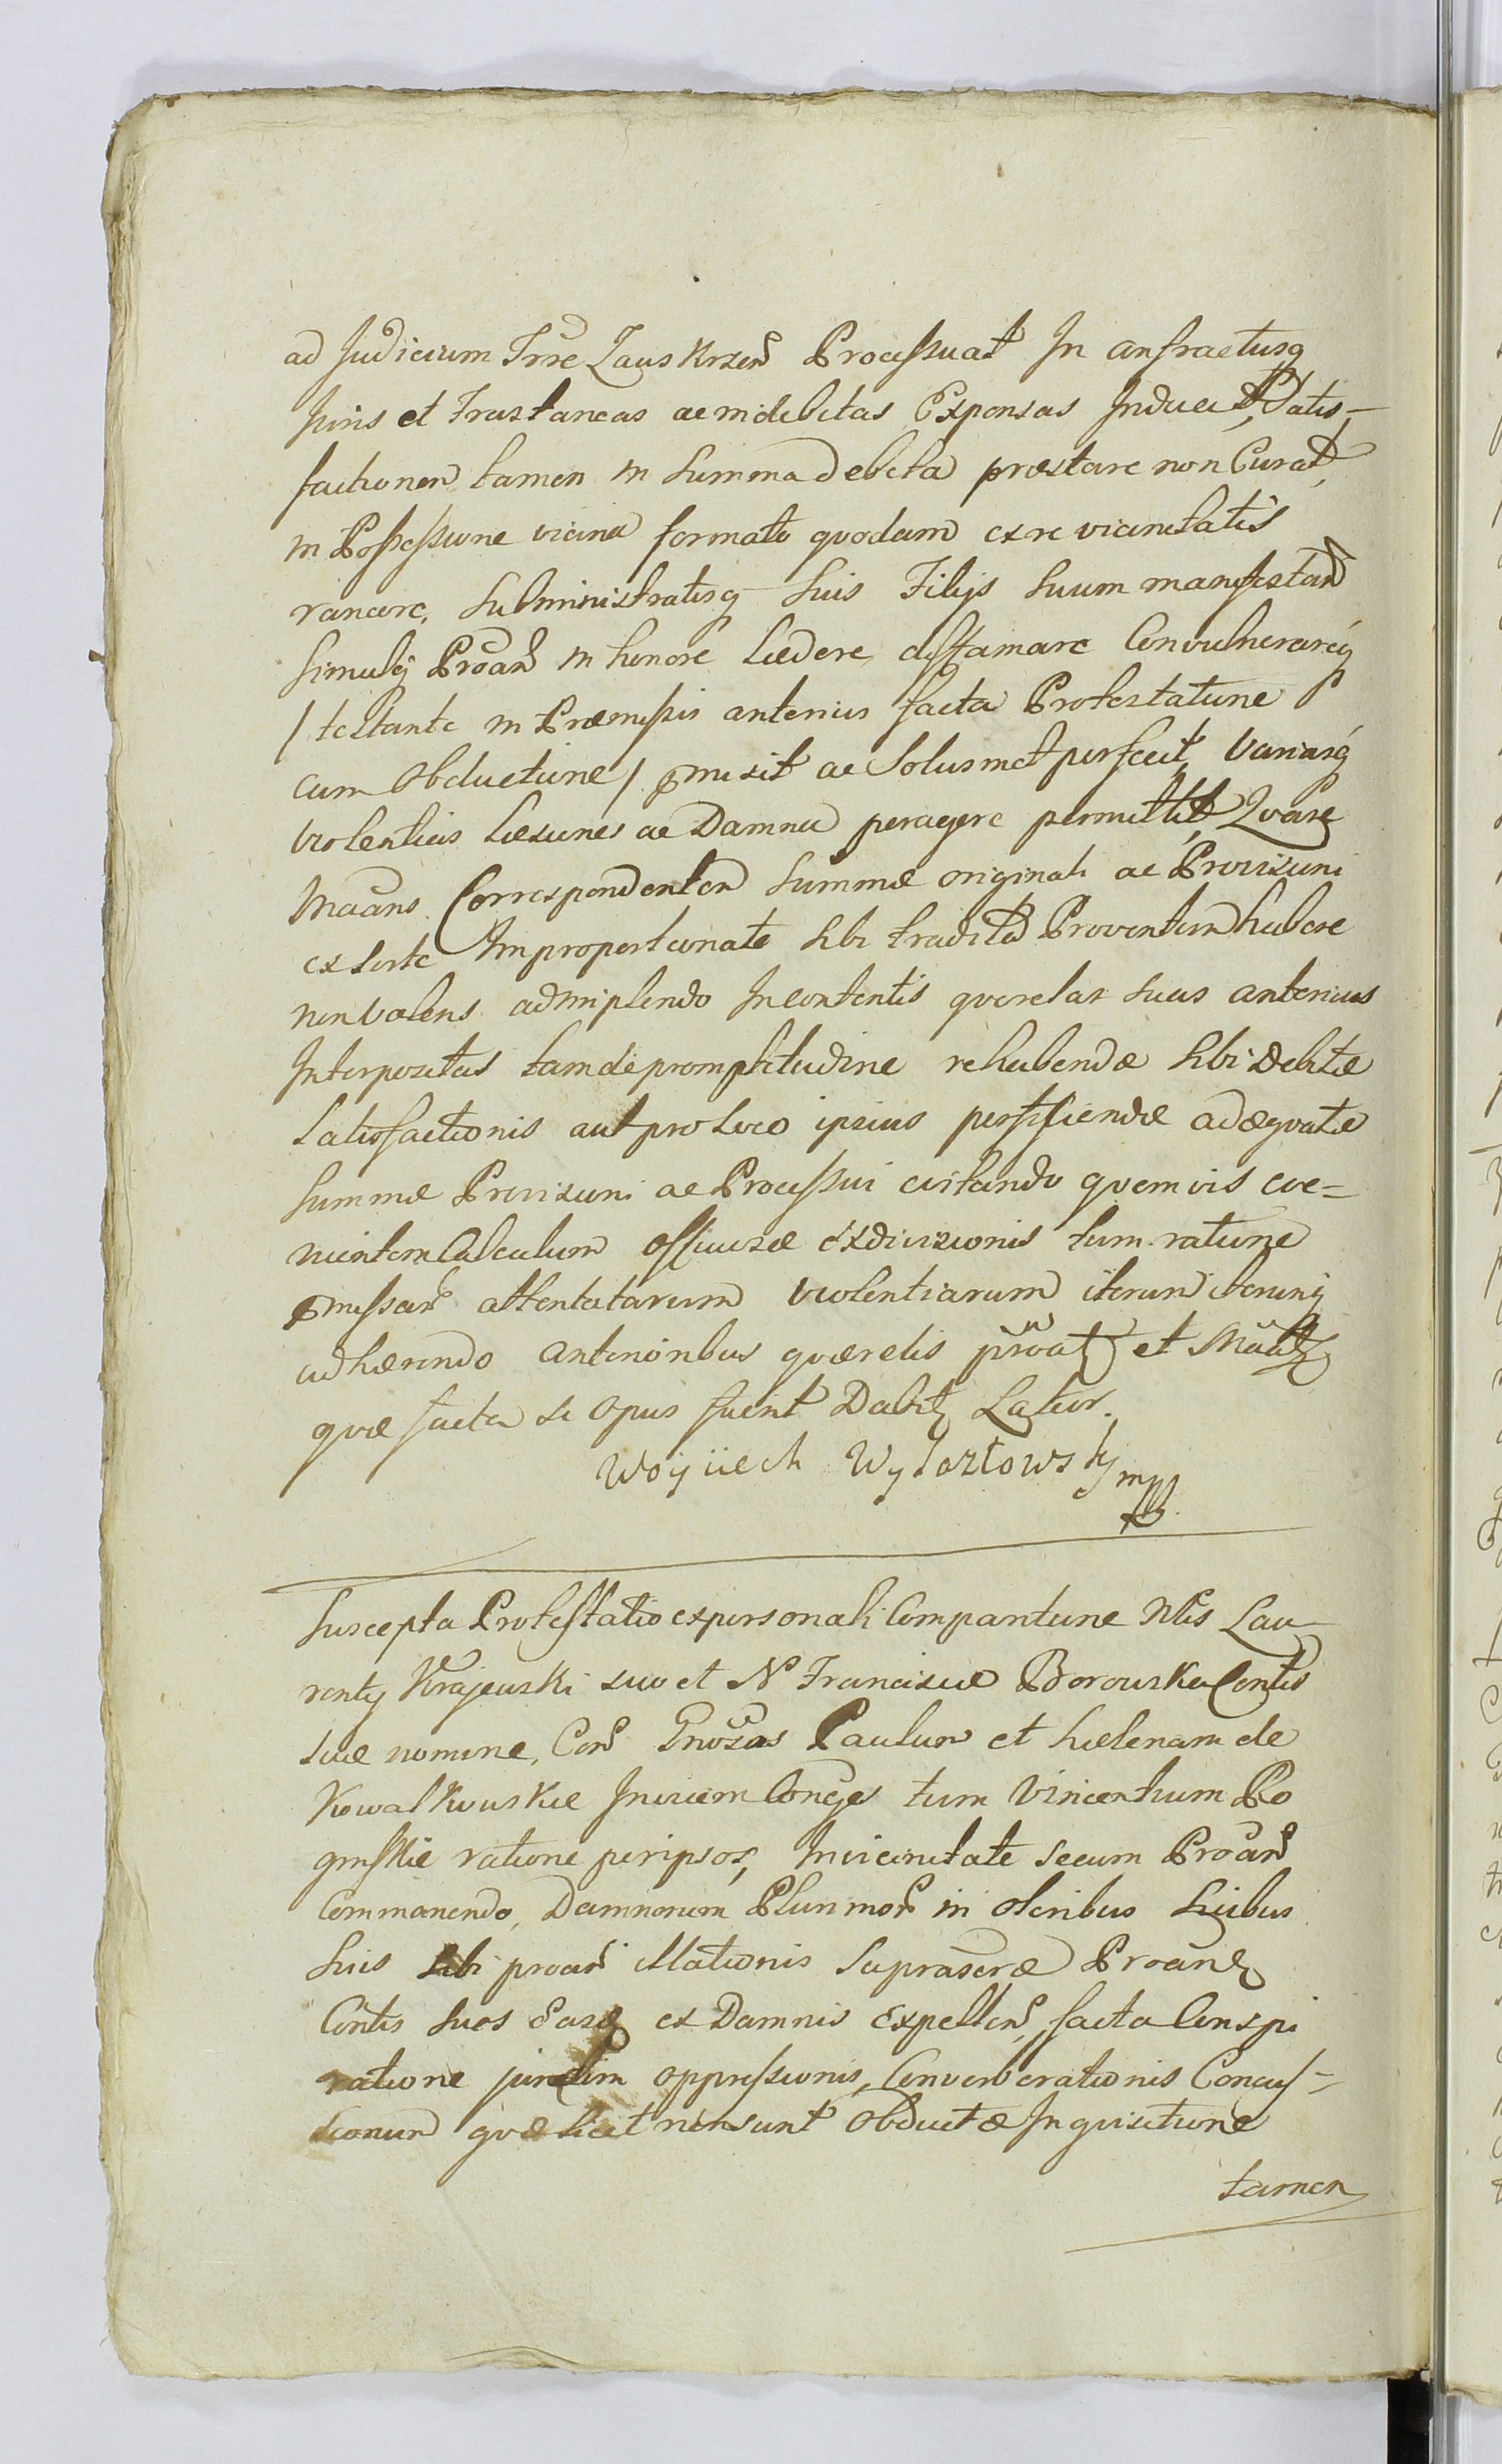 ad Judicium Trre Zauskrzen̄ Processuat In anfractusq
Juris et Frustaneas ac indebitas Expensas Inducit, Satis-
factionem tamen in Summa debita præstare non Curat,
in Possessione vicina formato quodam ex re vicinitatis
rancore, Subministratisq Suis Filijs Suum manifestan̄
Simulq Proan̄ in honore Lædere, diffamare Convulnerareq
/ testante in Præmissis anterius facta Protestatione
cum Obductione / p̄misit ac Solusmet perfecit, Variasq
Violentias Læsiones ac Damna peragere permittit, Quare
Mãans Correspondentem Summæ originali ac Provisioni
ex Sorte Improportionate Sibi tradita Proventum habere
non valens adimplendo Incontentis querelas suas anterius
Interpositas tam de promptitudine rehabendæ Sibi Debitæ
Satisfactionis aut pro Loco ipsius perficiendæ adæquatæ
Summæ Provisioni ac Processui evitando quemvis eve=
nientem Calculum Officiosæ Exdivisionis tum ratione
p̄missar̄ attentatarum violentiarum iterum iterumq
adhærendo anterioribus quærelis proat et Mãatz
quæ facta si opus fuerit Dabitz Latior.
Woyciech Wyszortowsky mpp.
Suscepta Protestatio ex personali Comparitione Nlis Lau-
renty Krajewski suo et N Franciscæ Borowska Contis
suæ nomine, Con̄ Gnosos Paulum et Hælenam de
Kowalkowskie Invicem Conges tum Vincentium Ro
ginskie ratione per ipsos, In vicinitate secum Proan̄
Commanendo, Damnorum Plurimor̄ in Oleribus
suis sibi proan̄ illationis Suprascræ Proan̄
Contis suos Easq ex Damnis Expellen̄, facta Conspi
ratione junctim oppressionis, Converberationis Concus-
sionum quæ licet non sunt Obductæ Inquisitione
tamen